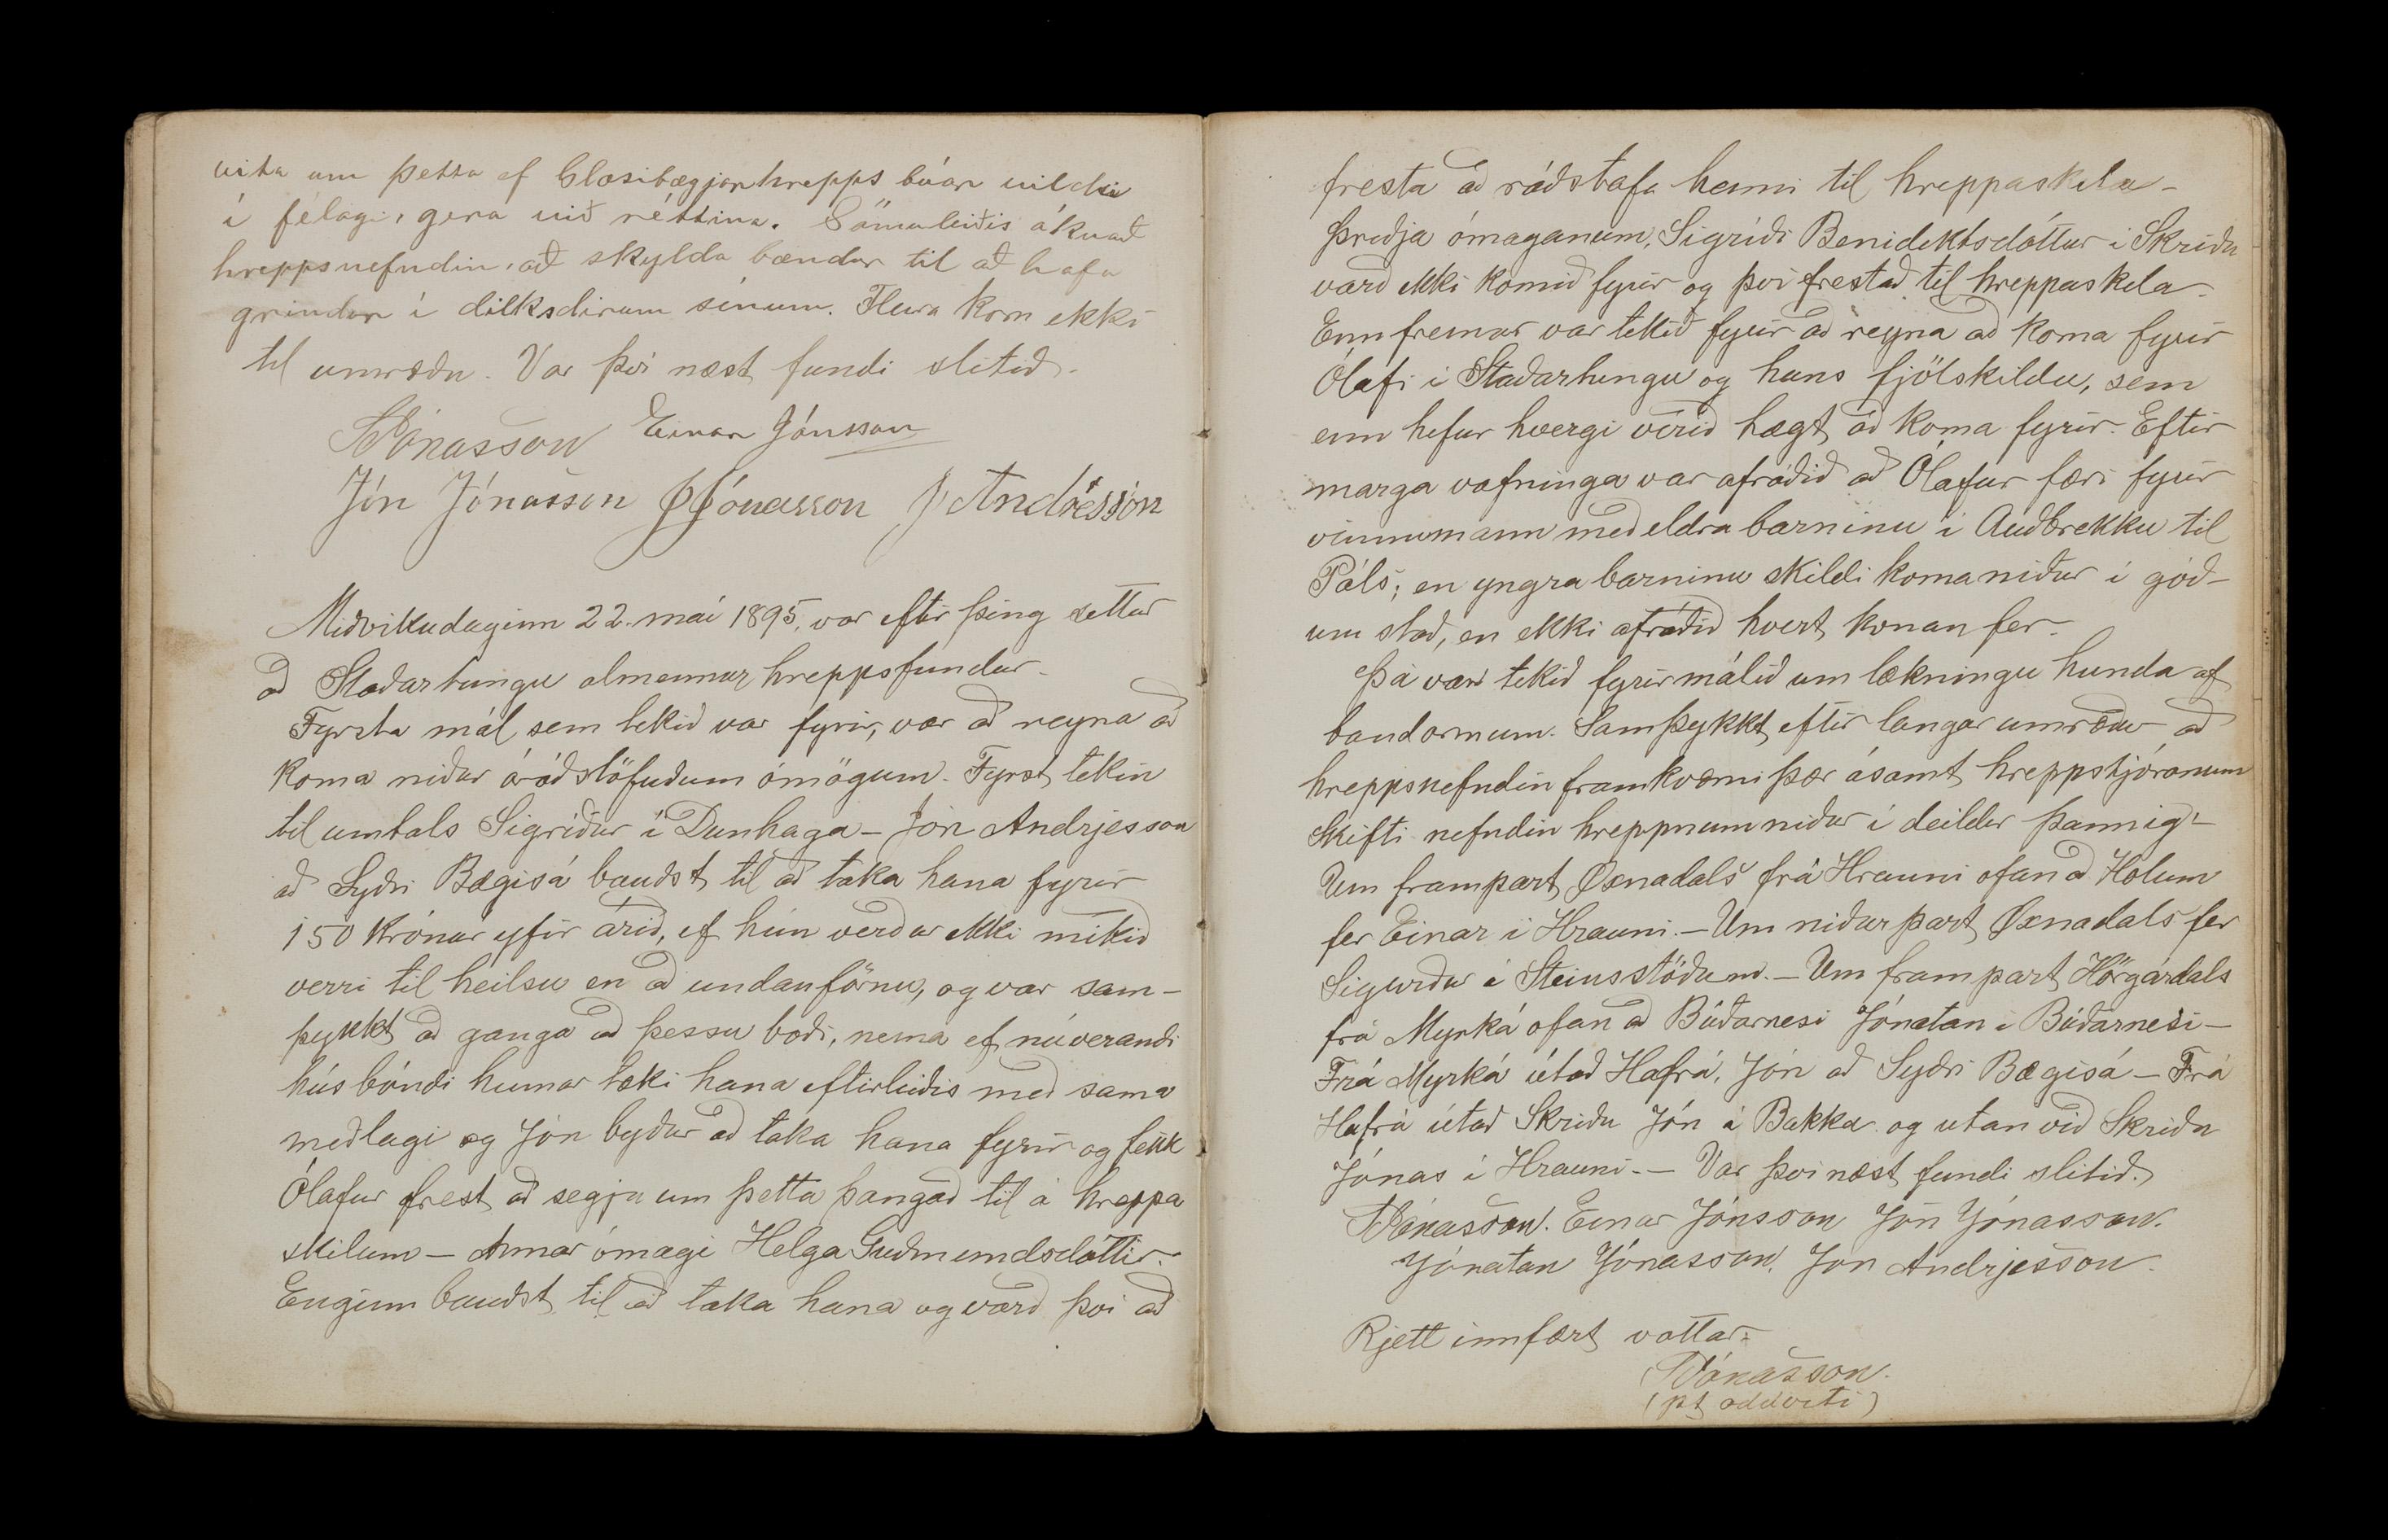 vita um þetta ef Glæsibægjarhrepps búar vildu
í félagi, gera við réttina. Sömuleiðis ákvað
hreppsnefndin, að skylda bændur til að hafa
grindur í dilksdirum sínum. Fleira kom ekki
til umræðu. Var því næst fundi slitið.
Jónasson Einar Jónsson
Jón Jónasson JJónasson J Andrésson
Miðvikudaginn 22. maí 1895, var eftir þing settur
að Staðartungu almennur hreppsfundur.
Fyrsta mál sem tekið var fyrir, var að reyna að
koma niður óráðstöfuðum ómögum. Fyrst tekin
til umtals Sigríður í Dunhaga – Jón Andrjesson
að Syðri Bægisá bauðst til að taka hana fyrir
150 krónur yfir árið, ef hún verður ekki mikið
verri til heilsu en að undanförnu, og var sam-
þykkt að ganga að þessu boði, nema ef núverandi
húsbóndi hennar tæki hana eftirleiðis með sama
meðlagi og Jón byður að taka hana fyrir og fekk
Ólafur frest að segja um þetta þangað til á hreppa
skilum – Annar ómagi Helga Guðmundsdóttir.
Enginn bauðst til að taka hana og varð því að
fresta að ráðstafa henni til hreppaskila –
Þriðja ómaganum, Sigríði Benidiktsdóttur í Skriðu
varð ekki komið fyrir og því frestað til hreppaskila.
Enn fremur var tekið fyrir að reyna að koma fyrir
Ólafi í Staðartungu og hans fjölskildu, sem
enn hefur hvergi verið hægt að koma fyrir. Eftir
marga vafninga var afráðið að Ólafur færi fyrir
vinnumann með eldra barninu í Auðbrekku til
Páls; en yngra barninu skildi koma niður í góð-
um stað, en ekki afráðið hvert konan fer.
Þá var tekið fyrir málið um lækningu hunda af
bandormum. Samþykkt eftir langar umræður að
hreppsnefndin framkvæmi þær ásamt hreppstjóranum
Skifti nefndin hreppnum niður í deildir þannig:–
Um frampart Öxnadals frá Hrauni ofan að Hólum
fer Einar í Hrauni. – Um niðurpart Öxnadals fer
Sigurður á Steinsstöðum. – Um frampart Hörgárdals
frá Myrká ofan að Búðarnesi Jónatan í Búðarnesi –
Frá Myrká útað Hafrá, Jón að Syðri Bægisá – Frá
Hafrá útað Skriðu Jón á Bakka og utan við Skriðu
Jónas í Hrauni. – Var því næst fundi slitið.
Jónasson. Einar Jónsson Jón Jónasson.
Jónatan Jónasson. Jón Andrjesson.
Rjett innfært vottar:
Jónasson.
(pt oddviti)